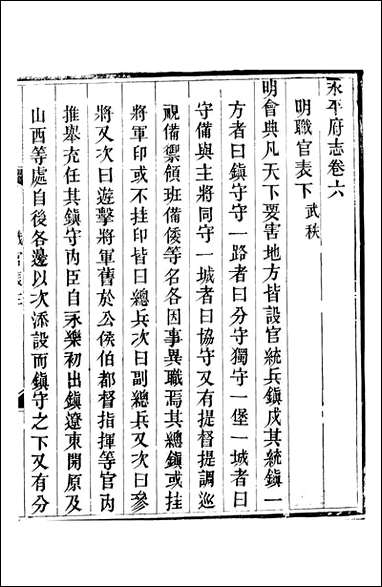 永平府志卷六
明職官表下 武秩
明會典凡天下要害地方皆設官統兵鎮戍其統鎮一
方者曰鎮守守一路者曰分守獨守一堡一城者曰
守備與主將同守一城者曰協守又有提督提調巡
視備禦領班備倭等名各因事異職焉其總鎮或掛
將軍印或不挂印皆曰總兵次曰副總兵又次曰參
將又次曰遊擊將軍舊於公侯伯都督指揮等官內
推舉充任其鎮守內臣自永樂初出鎮遼東開原及
山西等處自後各邊以次添設而鎮守之下又有分